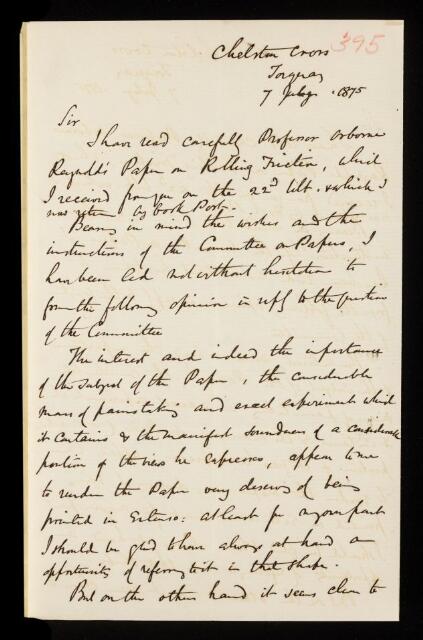 395
Chelston Cross
Torquay
7 July 1875
Sir
I have read carefully Professor Osborne
Reynolds' Paper on Rolling Friction, which
I received from you on the 22d Ult. & which I
now return by book Post.
Bearing in mind the wishes and the
instructions of the Committee on Papers, I
have been led not without hesitation to
form the following opinion in reply to the question
of the Committee
The interest and indeed the importance
of the subject of the Paper, the considerable
mass of painstaking and exact experiments which
it contains & the manifest soundness of a considerable
portion of the views he expresses, appear to me
to render the Paper very deserving of being
printed in Extenso: at least for my own part
I should be glad to have always at hand an
opportunity of referring to it in that shape.
But on the other hand it seems clear to